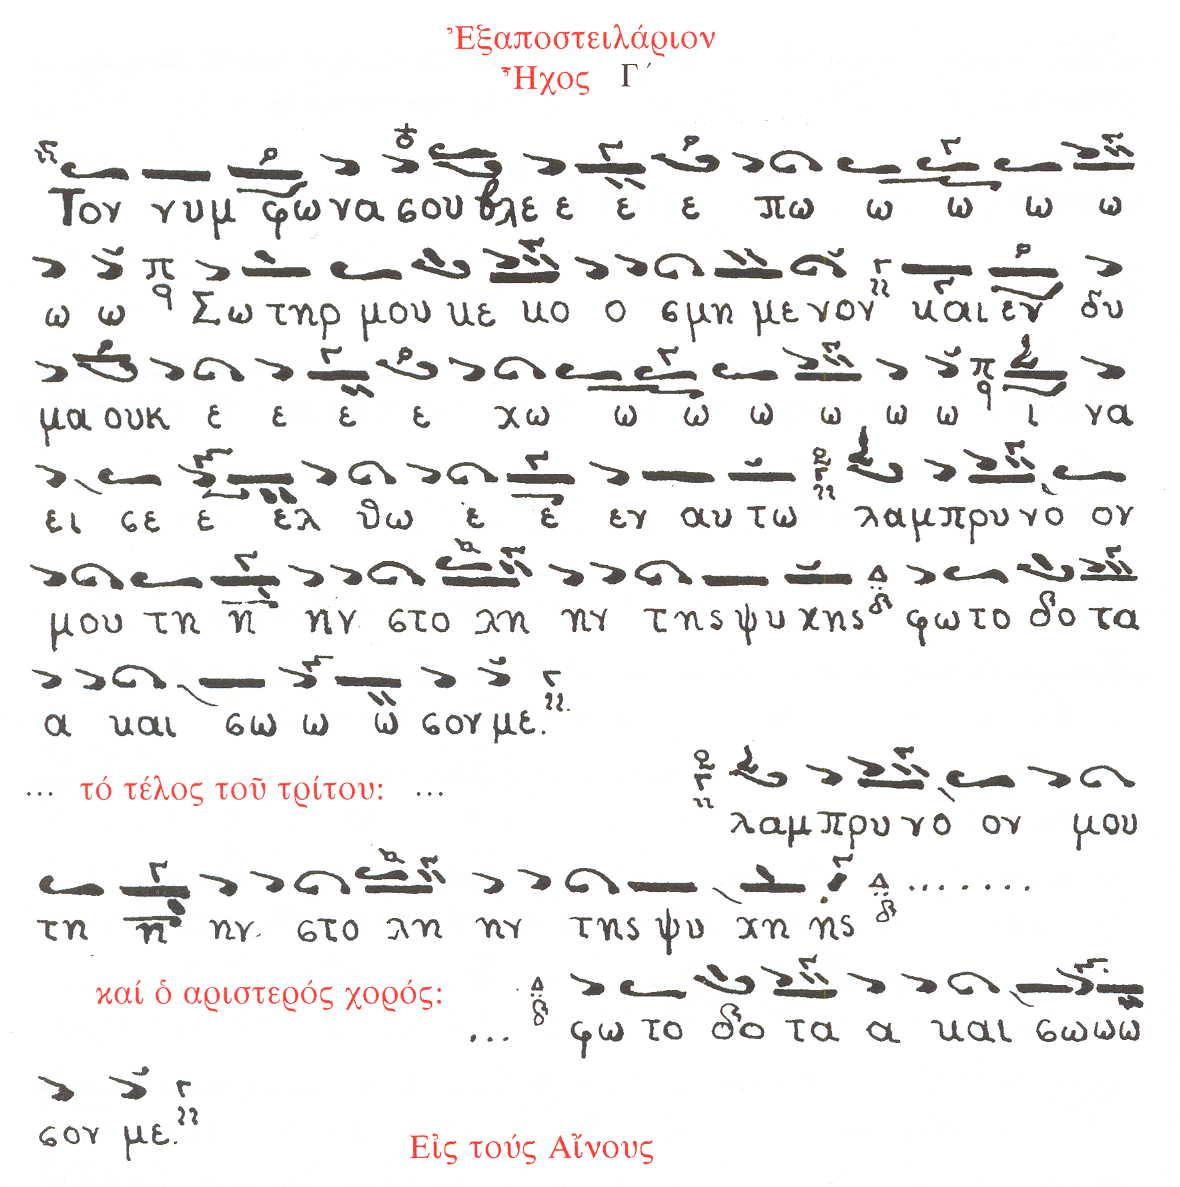 Ἐξαποστειλάριον
Ἦχος Γ΄
Τον νυμ φω να σου βλε ε ε ε πω ω ω ω ω
ω ω π Σω τηρ μου κε κο ο σμη με νον και εν δυ
μα ουκ ε ε ε ε χω ω ω ω ω ω ω π ι να
ει σε ε ελ θω ε ε εν αυ τω λαμ πρυ νο ον
μου τη η ην στο λη ην της ψυ χης Δ φω το δο τα
α και σω ω ω σον με.
... τό τέλος τοῦ τρίτου: ...
λαμ πρυ νο ον μου
τη η ην στο λη ην της ψυ χη ης Δ .......
καί ὁ αριστερός χορός:
... Δ φω το δο τα α και σω ω ω
σον με.
Εἰς τούς Αἴνους